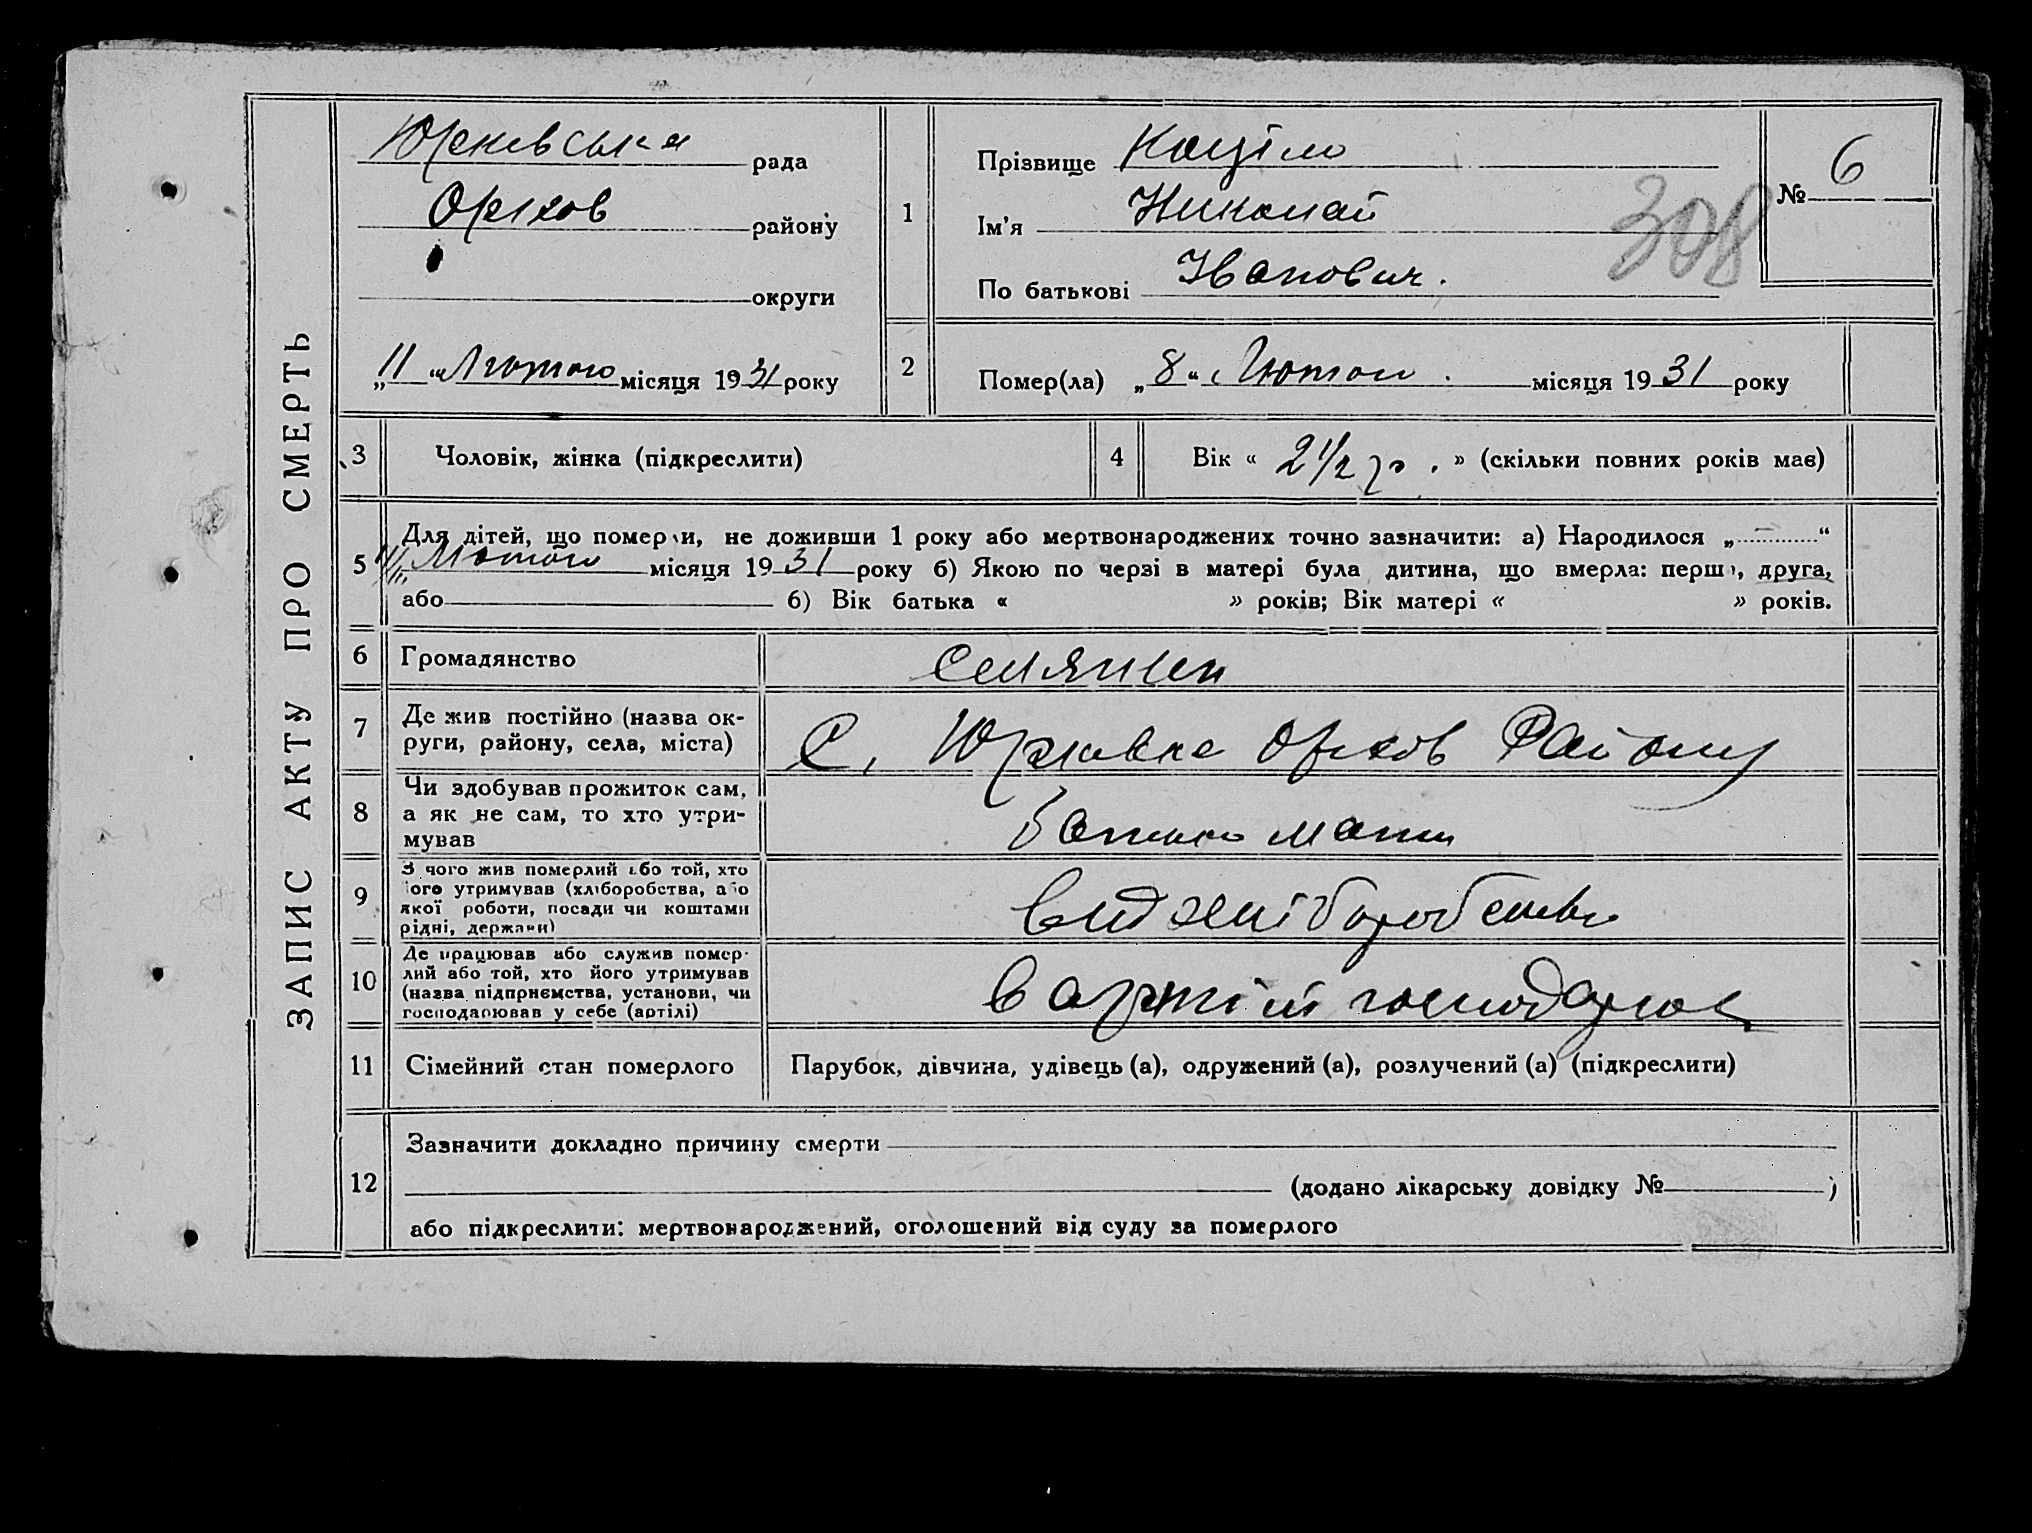 ЗАПИС АКТУ ПРО СМЕРТЬ
Юрківська рада
Оріхов району
округи
„11“ Лютого місяця 1931 року
1
Прізвище Коціло
Ім'я Николай
По батькові Іванович.
№ 6
308
2
Помер(ла) „8“ Лютого. місяця 1931 року
3 Чоловік, жінка (підкреслити)
4 Вік « 2 1/2 р. » (скільки повних років має)
5
Для дітей, що померли, не доживши 1 року або мертвонароджених точно зазначити: а) Народилося „ “
11 Лютого місяця 1931 року б) Якою по черзі в матері була дитина, що вмерла: перша, друга,
або б) Вік батька « » років; Вік матері « » років.
6 Громадянство Селянин
7
Де жив постійно (назва ок-
руги, району, села, міста)
С. Юрковка Оріхов Району
8
Чи здобував прожиток сам,
а як не сам, то хто утри-
мував
Батько Мати
9
З чого жив померлий або той, хто
його утримував (хліборобства, або
якої роботи, посади чи коштами
рідні, держави)
вид хліборобства
10
Де працював або служив помер-
лий або той, хто його утримував
(назва підприємства, установи, чи
господарював у себе (артілі)
в артілі
11 Сімейний стан померлого Парубок, дівчина, удівець (а), одружений (а), розлучений (а) (підкреслити)
12
Зазначити докладно причину смерти
(додано лікарську довідку № )
або підкреслити: мертвонароджений, оголошений від суду за померлого